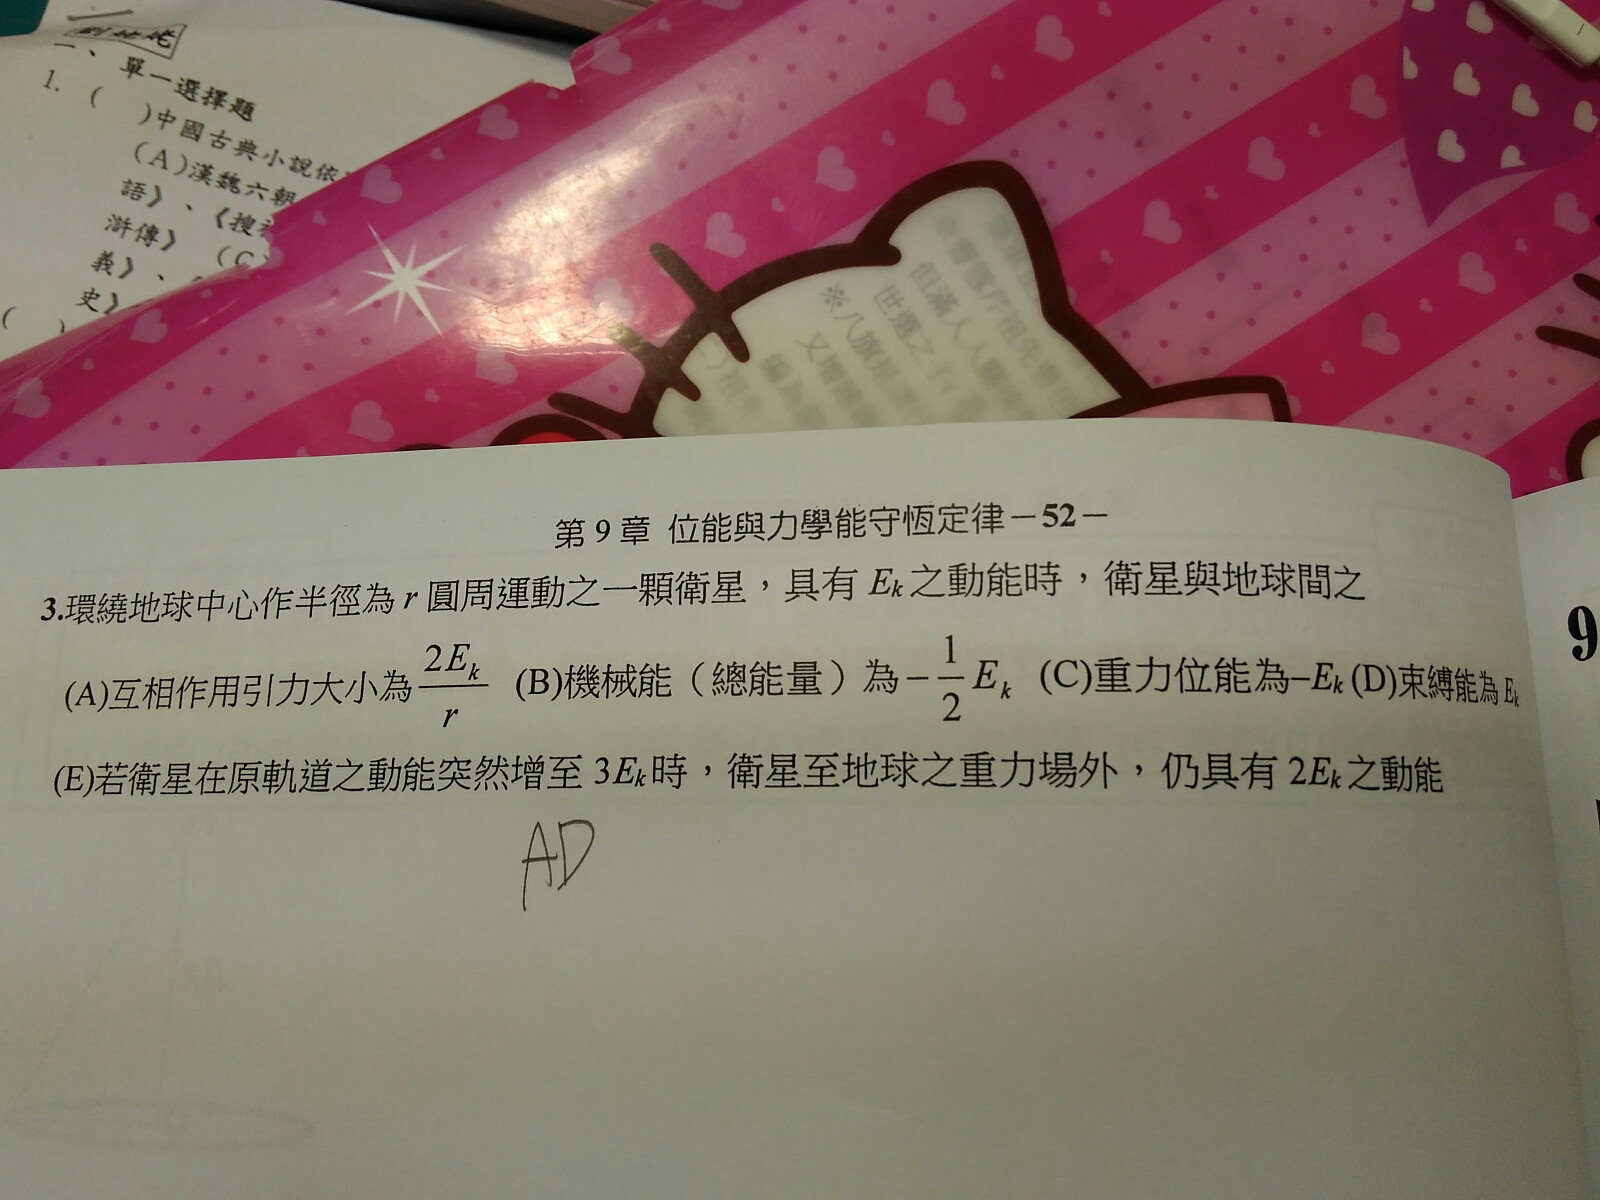 一、單一選擇題
1. ( )中國古典小說依
(A)漢魏六朝
語》、《搜
滸傳》 (C)
義》、
史》
( )
※八旗
又增
世選之
但滿人
第 9 章 位能與力學能守恆定律－52－
3.環繞地球中心作半徑為 r 圓周運動之一顆衛星，具有 Ek 之動能時，衛星與地球間之
(A)互相作用引力大小為 2Ek/r (B)機械能（總能量）為 −1/2 Ek (C)重力位能為−Ek (D)束縛能為 Ek
(E)若衛星在原軌道之動能突然增至 3Ek 時，衛星至地球之重力場外，仍具有 2Ek 之動能
AD
9